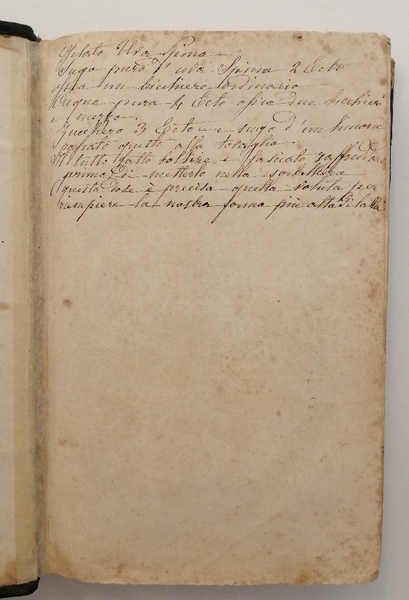 Gelato Uva Spina
Sugo puro d'uva Spina 2 Ecto
ossia un bicchiere ordinario
Acqua pura 4 Ecto ossia due bicchieri
e mezzo
Zucchero 3 Ecto e sugo d'un limone
passato questo alla tovaglia
Il tutto fatto bollire e lasciato raffreddare
prima di metterlo nella sorbettiera
Questa dose è precisa quella voluta per
riempiere la nostra forma più alta di latta